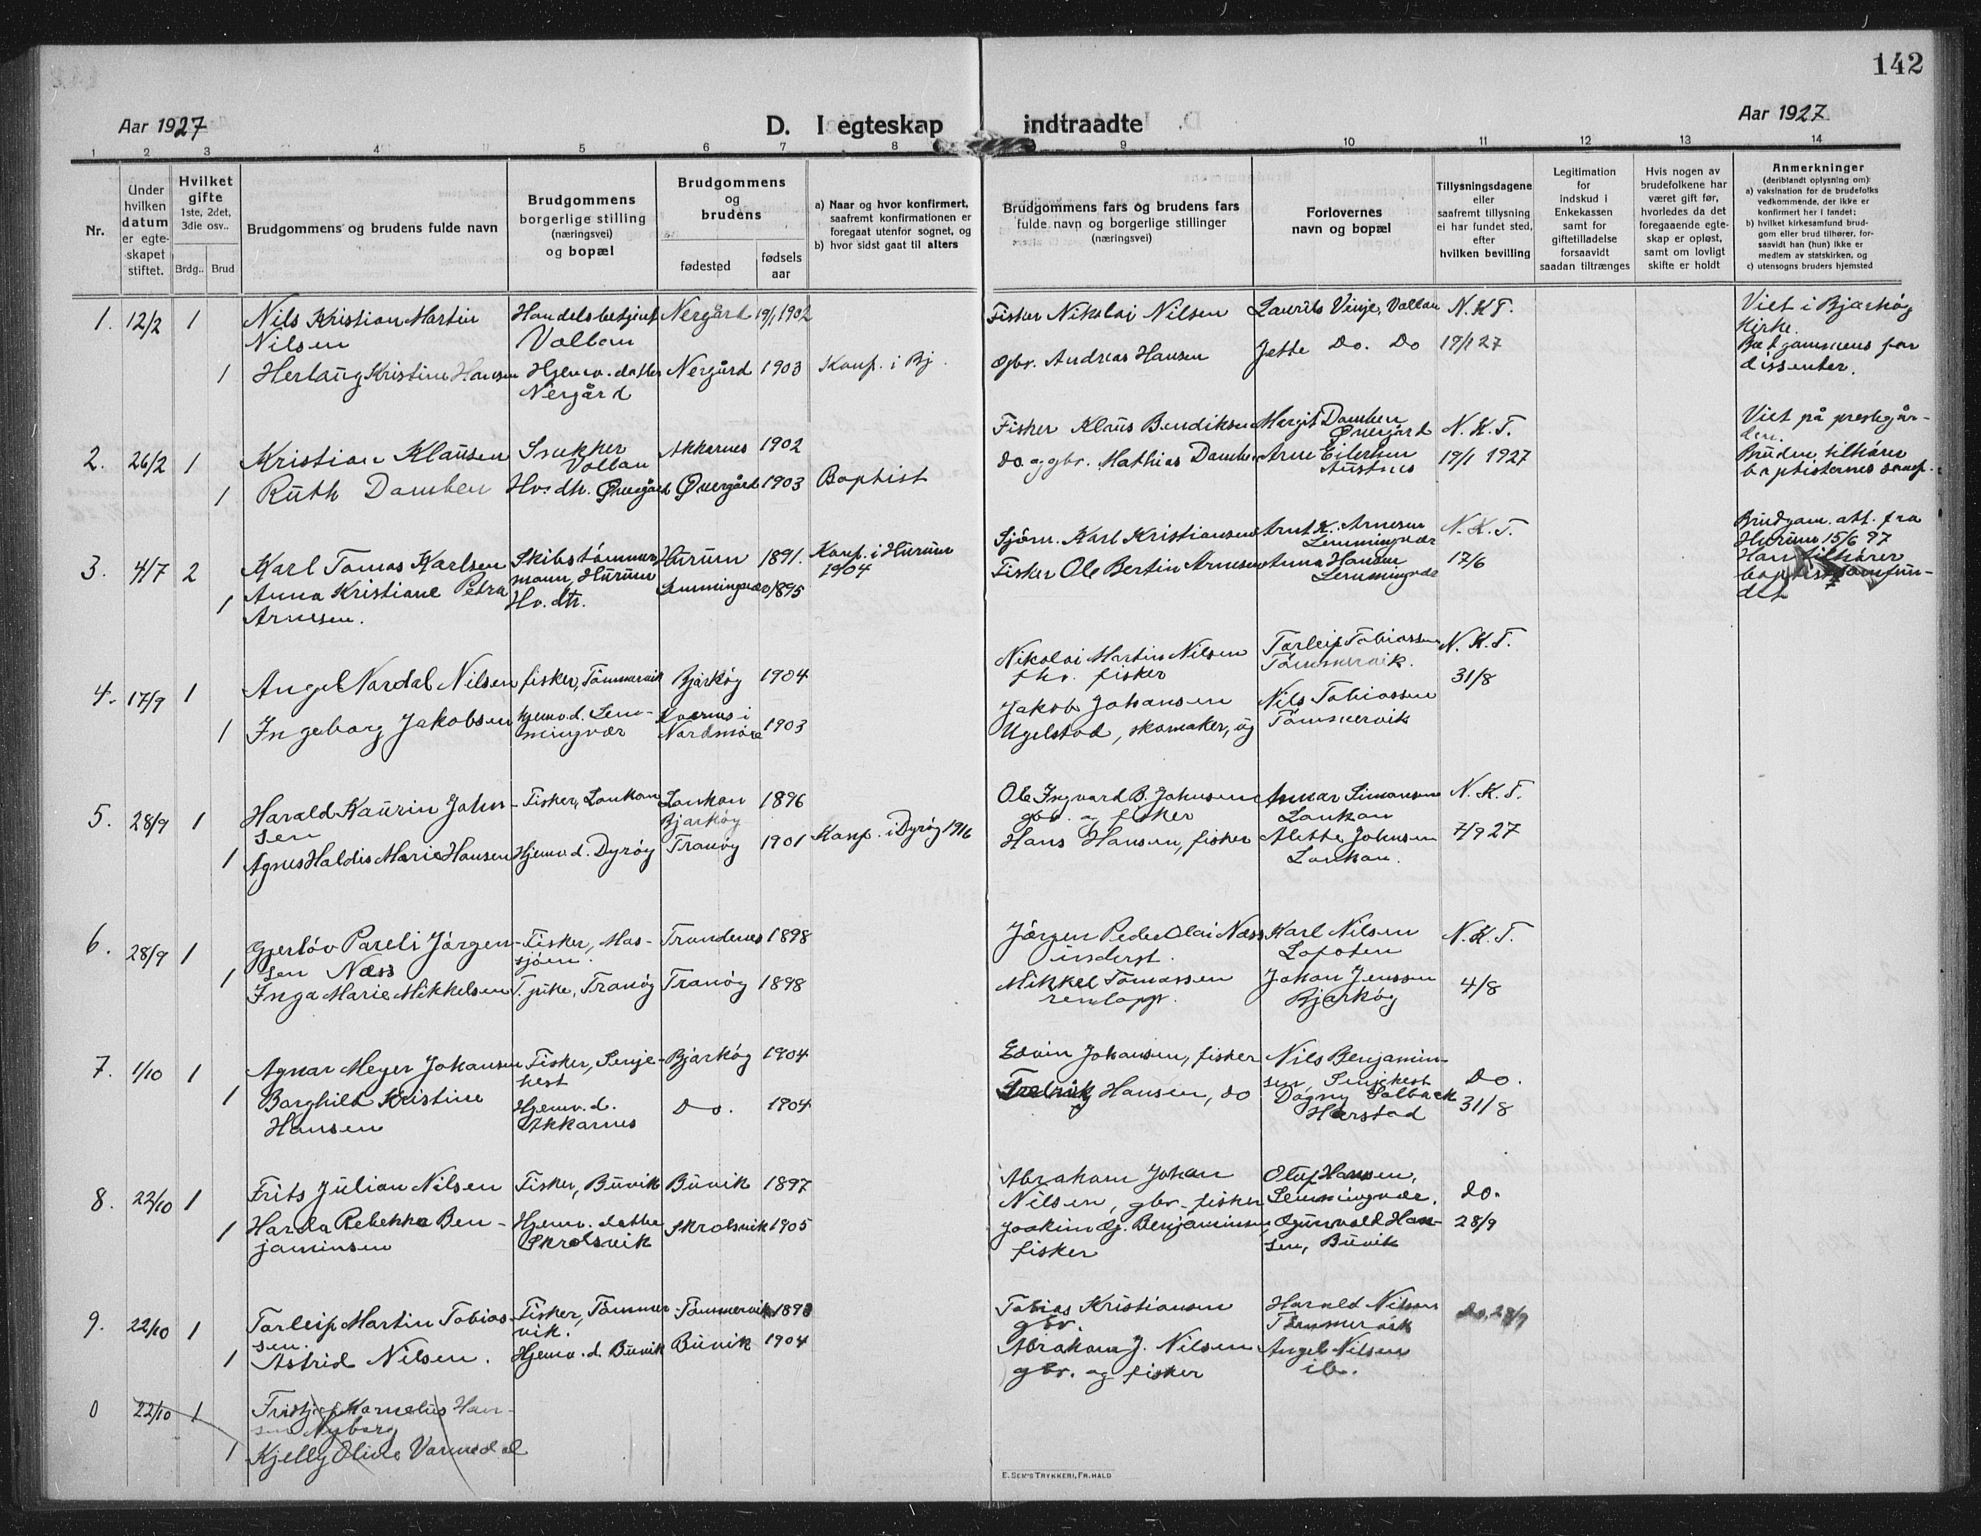 142
Aar 1927
D. I egteskap indtraadte
Aar 1927
1 2 3 4 5 6 7 8 9 10 11 12 13 14
Nr.
Under hvilken datum er egte-skapet stiftet.
Hvilket gifte 1ste, 2det, 3die osv..
Brdg.. Brud
Brudgommens og brudens fulde navn
Brudgommens borgerlige stilling (næringsvei) og bopæl
Brudgommens og brudens
fødested
fødsels aar
a) Naar og hvor konfirmert, saafremt konfirmationen er foregaat utenfor sognet, og
b) hvor sidst gaat til alters
Brudgommens fars og brudens fars fulde navn og borgerlige stillinger (næringsvei)
Forlovernes navn og bopæl
Tillysningsdagene eller saafremt tillysning ei har fundet sted, efter hvilken bevilling
Legitimation for indskud i Enkekassen samt for giftetilladelse forsaavidt saadan tiltrænges
Hvis nogen av brudefolkene har været gift før, hvorledes da det foregaaende egte-skap er opløst, samt om lovligt skifte er holdt
Anmerkninger
(deriblandt oplysning om):
a) vaksination for de brudefolks vedkommende, der ikke er konfirmert her i landet;
b) hvilket kirkesamfund brud-gom eller brud tilhører, for-saavidt han (hun) ikke er medlem av statskirken, og
c) utensogns bruders hjemsted
1. 12/2 1 Nils Kristian Martin Handelsbetjent Nergård 19/1 1902 Fisker Nikolai Nilsen Laurits Vinje, Vollan N.K.T. Viet i Bjarköy
Nilsen Vollan kirke.
1 Herlaug Kristine Hansen Hjemv. datter Nergård 1903 Konf. i Bj. Gbr. Andreas Hansen Jette Do. Do 19/1 27
Nergård dissenter.
2. 26/2 1 Kristian Klausen Snekker Akkarnes 1902 Fisker Klaus Bendiksen Margit Damben N.K.T. Viet på prestegår-
Vollan Övergård den.
1 Ruth Damben Hv. dtr. Övergård Övergård 1903 Baptist do og gbr. Mathias Damben Arne Eilertsen 19/1 1927 Bruden tilhörer
Austnes baptisternes samf.
3. 4/7 2 Karl Tomas Karlsen Skibstömmer- Hurum 1891. Konf. i Hurum Sjöm. Karl Kristiansen Arnt K. Arnesen N.K.T. Brudgom. att. fra
mann, Hurum 1904 Lemmingvær Hurum 15/6 27
1 Anna Kristiane Petra Hv. dtr. Lemmingvær 1895 Fisker Ole Bertin Arnesen Anna Hansen 17/6 Han tilhörer
Arnesen. Lemmingvær baptistsamfun-
det
4. 17/9 1 Angel Nordal Nilsen fisker, Tömmervik Bjarköy 1904 Nikolai Martin Nilsen Torleif Tobiassen N.K.T.
fhv. fisker Tömmervik. 31/8
1 Ingeborg Jakobsen Hjemv. d. Lem- Kvernes i 1903 Jakob Johansen Nils Tobiassen
mingvær Nordmöre Ugelstad, skomaker, Tömmervik
5. 28/9 1 Harald Kaurin John- Fisker, Lonkan Lonkan 1896 Ole Ingvard B. Johnsen Annar Simonsen N.K.T.
sen Bjarköy gbr. og fisker Lonkan
1 Agnes Haldis Marie Hansen Hjemv. d. Dyröy Tranöy 1901 Konf. i Dyröy 1916 Hans Hansen, fisker Alette Johnsen 7/9 27
Lonkan.
6. 28/9 1 Gjerlöv Pareli Jörgen- Fisker, Mas- Trondenes 1898 Jörgen Peder Olai Næss Karl Nilsen N.K.T.
sen Næss sjöen. inderst. Lofoten
1 Inga Marie Mikkelsen T. pike, Tranöy Tranöy 1898 Mikkel Tomassen Johan Jenssen 4/8
rendlapp. Bjarköy
7. 1/10 1 Agnar Meyer Johansen Fisker, Senje- Bjarköy 1904 Edvin Johansen, fisker Nils Benjamin-
hest sen, Senjehest Do.
1 Borghild Kristine Hjemv. d. Do. 1904 Fredrik Hansen, do Dagny Solbakk 31/8
Hansen Akkarnes Harstad
8. 22/10 1 Frits Julian Nilsen Fisker, Buvik Buvik 1897 Abraham Johan Oluf Hansen, do.
Nilsen, gbr. fisker Lemmingvær.
1 Harda Rebekka Ben- Hjemv. datter Skrolsvik 1905 Joakim Benjaminsen Gunvald Han- 28/9
jaminsen Skrolsvik fisker sen, Buvik
9. 22/10 1 Torleif Martin Tobias- Fisker, Tömmer- Tömmervik Tobias Kristiansen Harald Nilsen Do, 28/9
sen. vik. gbr. Tömmervik
1 Astrid Nilsen. Hjemv. d. Buvik Buvik 1904 Abraham J. Nilsen Angel Nilsen
gbr. og fisker ib.
0 22/10 1 Fridtjof Kornelius Han-
sen Nyborg
1 Kjelly Oline
E. SEM'S TRYKKERI, FR.HALD